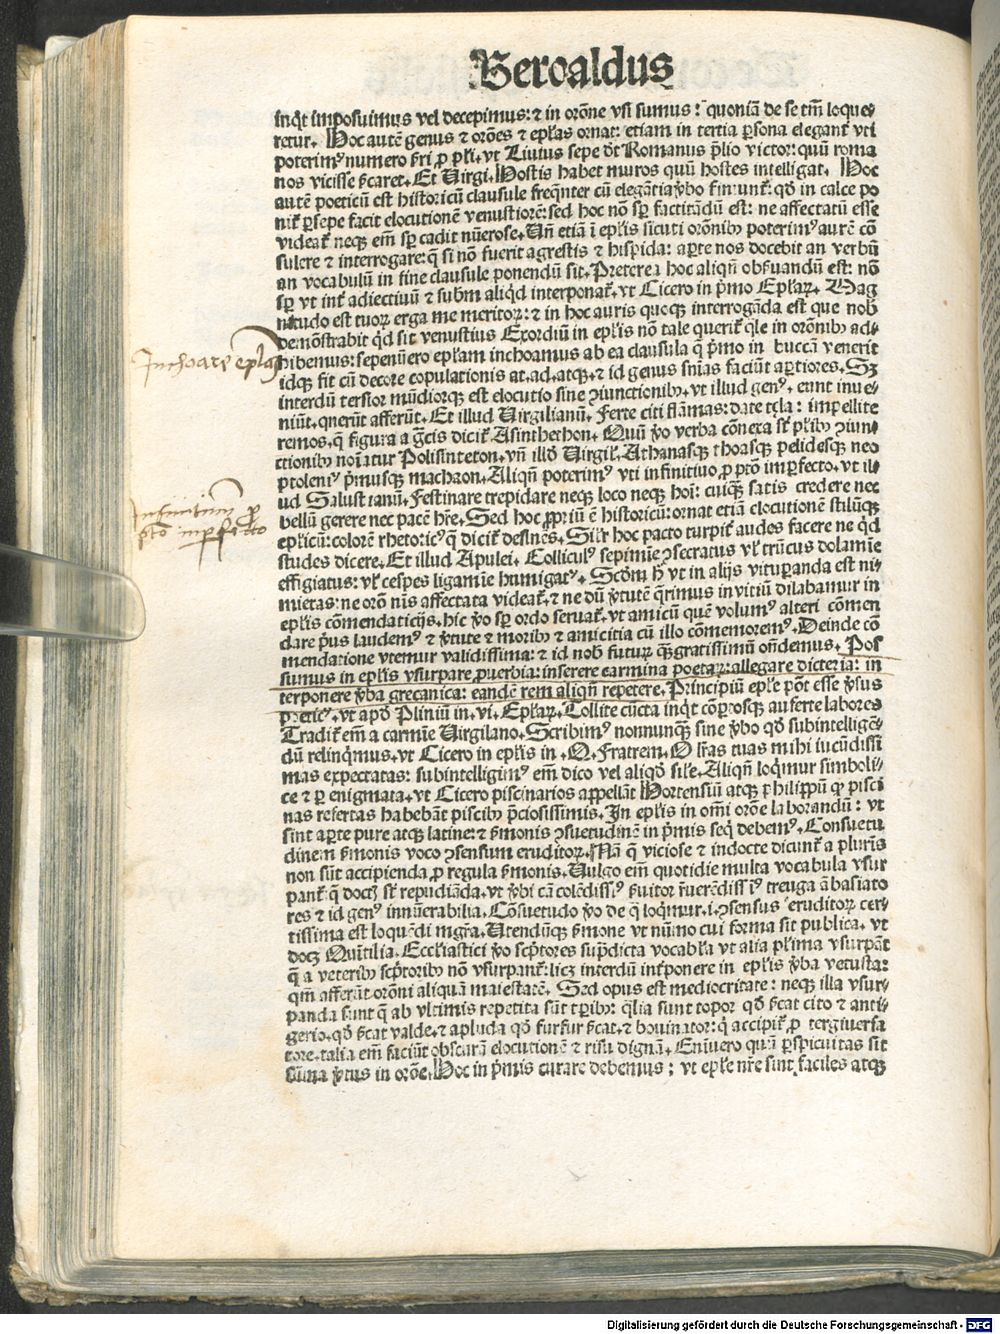 Beroaldus
inq̇t imposuimus vel decepimus: ⁊ in orōne vsi sumus: quoniā de se tm̄ loque⸗
retur. Hoc autē genus ⁊ orōes ⁊ epl̄as ornat: etiam in tertia ꝑsona elegant͛ vti
poterimꝰ numero sʼri ꝓ pl̄i. vt Liuius sepe dʼt Romanus ꝓlio victor: quū roma
nos vicisse sʼcaret. Et Virgi. Hostis habet muros quū hostes intelligat. Hoc
autē poeticū est historicū clausule freqn̄ter cū elegātia v̓bo finiunt͛: qđ in calce po
nit͛ ꝑsepe facit elocutionē venustiorē: sed hoc nō sꝑ factitādū est: ne affectatū esse
videat͛ neqꝫ em̄ sꝑ cadit nūerose. Vn̄ etiā ī epl̄is sicuti orōnibꝰ poterimꝰ aurē cō
sulere ⁊ interrogare: q̄ si nō fuerit agrestis ⁊ hispida: aꝑte nos docebit an verbū
an vocabulū in fine clausule ponendū sit. Preterea hoc aliqn̄ obsʼuandū est: nō
sꝑ vt int͛ adiectiuū ⁊ subm̄ aliqd interponat͛. vt Cicero in pʼmo Epl̄aꝝ. Mag
nitudo est tuoꝝ erga me meritoꝝ: ⁊ in hoc auris quoqꝫ interrogāda est que nob̄
demōstrabit qd sit venustius Exordiū in epl̄is nō tale querit͛ q̄le in orōnibꝰ ad⸗
hibemus: sepenūero epl̄am inchoamus ab ea clausula q̄ pʼmo in buccā venerit
idqꝫ fit cū decore copulationis at. ad. atqꝫ. ⁊ id genus sn̄ias faciūt aꝑtiores. Sꝫ
interdū tersior mūdiorqꝫ est elocutio sine ꝯiunctionibꝰ. vt illud genꝰ. eunt inue⸗
niūt. querūt afferūt. Et illud Virgilianū. Ferte citi flāmas: date tela: impellite
remos. q̄ figura a gʼcis dicit͛ Asinthethon. Quū v̓o verba cōnexa sʼt pl̄ibꝰ ꝯiun⸗
ctionibꝰ noīatur Polisinteton. vn̄ illđ Virgil. Athanasqꝫ thoasqꝫ pelidesqꝫ neo
ptolemꝰ pʼmusqꝫ machaon. Aliqn̄ poterimꝰ vti infinitiuo ꝓ pʼtō imꝑfecto. vt il⸗
ud Salustianū. Festinare trepidare neqꝫ loco neqꝫ hoī: cuiqꝫ satis credere nec
bellū gerere nec pacē hr̄e. Sed hoc ꝓpriū ē historicū: ornat etiā elocutionē stilūqꝫ
epl̄icū: colorē rhetoricꝰ q̄ dicit͛ desinēs. Sil̄r hoc pacto turpit͛ audes facere ne qd
studes dicere. Et illud Apulei. Colliculꝰ sepimīe ꝯsecratus vl̄ trūcus dolamīe
effigiatus: vl̄ cespes ligamīe humigatꝰ. Scōm hʼ vt in alijs vituꝑanda est ni⸗
mietas: ne orō nr̄is affectata videat͛. ⁊ ne dū v̓tutē qʼrimus in vitiū dilabamur in
epl̄is cōmendaticijs. hic v̓o sꝑ ordo seruat͛. vt amicū quē volumꝰ alteri cōmen
dare pʼus laudemꝰ ⁊ v̓tute ⁊ moribꝰ ⁊ amicitia cū illo cōmemoremꝰ. Deinde cō
mendatione vtemur validissima: ⁊ id nob̄ futuꝝ qꝫgratissimū on̄demus. Pos
sumus in epl̄is vsurpare ꝓuerbia: inserere carmina poetaꝝ: allegare dicteria: in
terponere v̓ba grecanica: eandē rem aliqn̄ repetere. Principiū epl̄e pōt esse v̓sus
poeticꝰ. vt apđ Pliniū in. vi. Epl̄aꝝ. Tollite cūcta inq̇t cōꝑtosqꝫ auferte labores
Tradit͛ em̄ a carmīe Virgilano. Scribimꝰ nonnunqꝫ sine v̓bo qđ subintelligē⸗
dū relinqʼmus. vt Cicero in epl̄is in. Q. Fratrem. O lr̄as tuas mihi iucūdissi
mas expectatas: subintelligimꝰ em̄ dico vel aliqđ sil̄e. Aliqn̄ loqʼmur simboli⸗
ce ⁊ ꝑ enigmata. vt Cicero piscinarios appellāt Hortensiū atqꝫ philippū qꝫ pisci
nas refertas habebāt piscibꝰ pʼciosissimis. In epl̄is in om̄i orōe laborandū: vt
sint aꝑte pure atqꝫ latine: ⁊ sʼmonis ꝯsuetudinē in pʼmis seqʼ debemꝰ. Consuetu
dinem sʼmonis voco ꝯsensum eruditoꝝ. Nā q̄ viciose ⁊ indocte dicunt͛ a plurīs
non sūt accipienda ꝓ regula sʼmonis. Vulgo em̄ quotidie multa vocabula vsur
pant͛ q̄ doctꝭ sʼt repudiāda. vt v̓bi cā colēdissꝰ sʼuitor rʼuerēdissīꝰ treuga ābasiato
res ⁊ id genꝰ innūerabilia. Cōsuetudo v̓o de q̄ loqʼmur. i. ꝯsensus eruditoꝝ cer⸗
tissima est loquēdi mgr̄a. Vtendūqꝫ sʼmone vt nūmo cui forma sit publica. vt
docꝫ Quītilia. Eccl̄iastici v̓o scpʼtores supʼdicta vocabl̄a vt alia pl̄ima vsurpāt
q̄ a veteribꝰ scpʼtoribꝰ nō vsurpant͛: licꝫ interdū int͛ponere in epl̄is v̓ba vetusta:
qm̄ afferūt orōni aliquā maiestatē. Sed opus est mediocritate: neqꝫ illa vsur⸗
panda sunt q̄ ab vltimis repetita sūt tꝑibꝰ: qʼlia sunt topoꝝ qđ sʼcat cito ⁊ anti⸗
gerio. qđ sʼcat valde. ⁊ apluda qđ furfur sʼcat. ⁊ bouinator: q̄ accipit͛ ꝓ tergiuersa
tore. talia em̄ faciūt obscurā elocutionē ⁊ risu dignā. Enīuero quā ꝑspicuitas sit
sūma v̓tus in orōe. Hoc in pʼmis curare debemus: vt epl̄e nr̄e sint faciles atqꝫ
Inchoare epl̄as
Infinitiuum ꝓ
pʼtō imꝑfecto
Digitalisierung gefördert durch die Deutsche Forschungsgemeinschaft - DFG